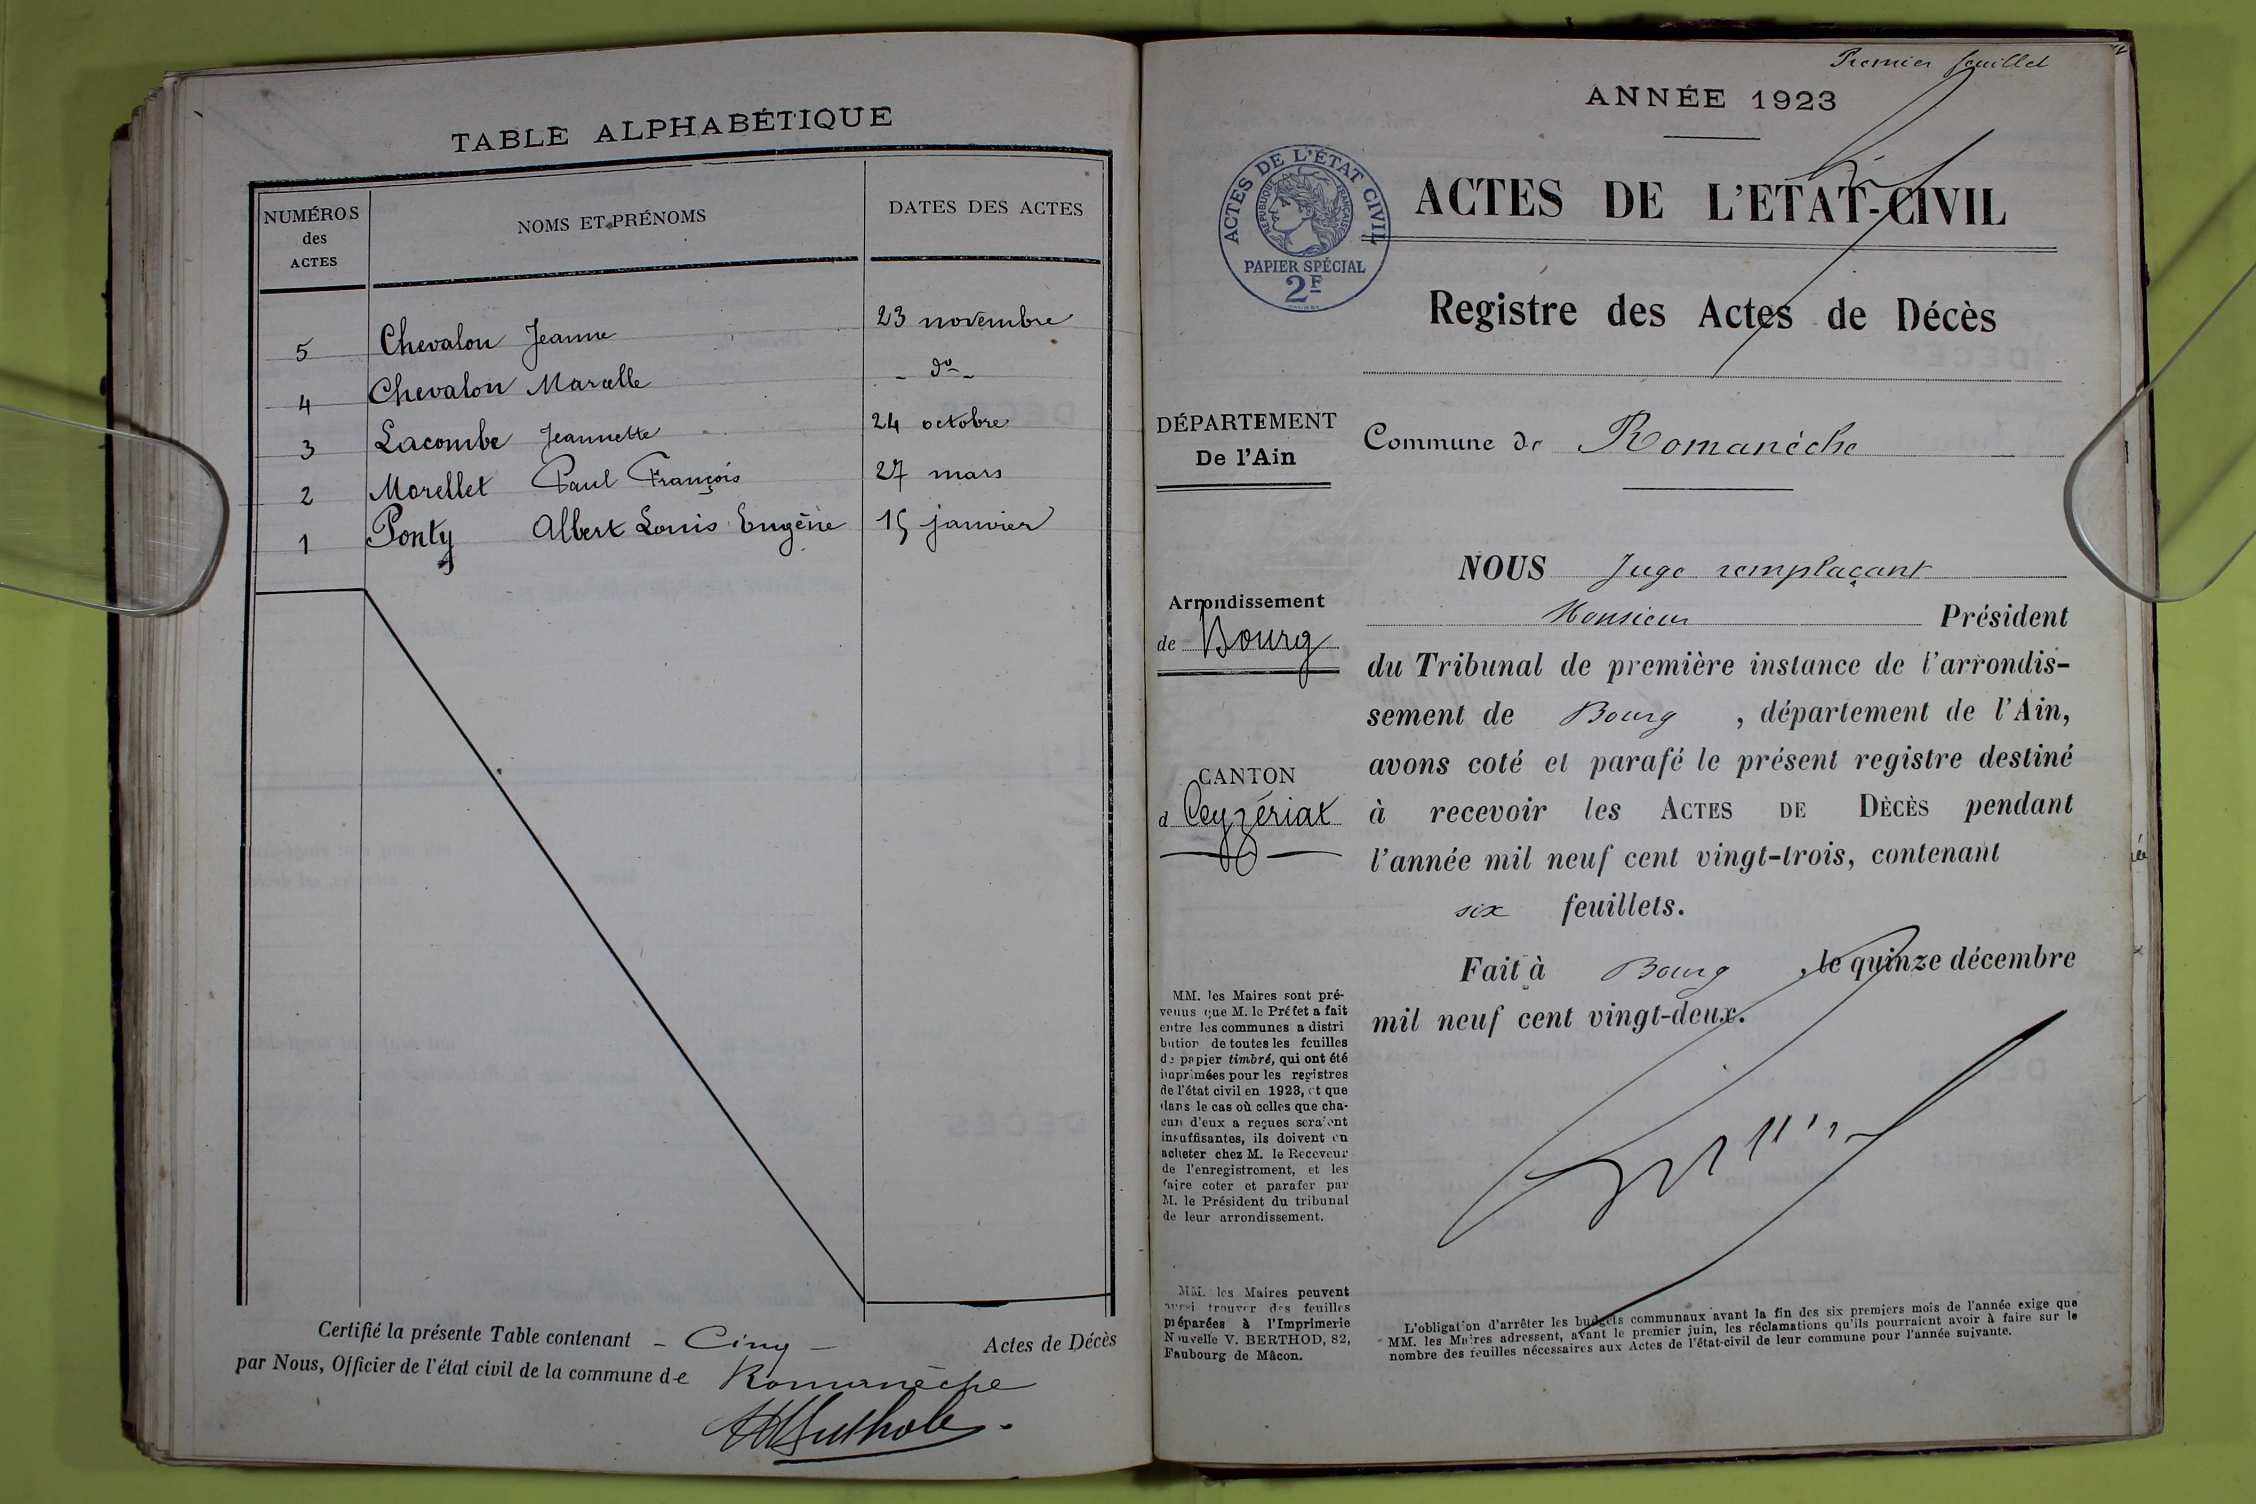 TABLE ALPHABÉTIQUE
NUMÉROS
des
ACTES
NOMS ET PRÉNOMS
DATES DES ACTES
5 Chevalon Jeanne 23 novembre
4 Chevalon Marcelle - do -
3 Lacombe Jeannette 24 octobre
2 Morellet Paul François 27 mars
1 Ponty Albert Louis Eugène 15 janvier
Certifié la présente Table contenant - Cinq - Actes de Décès
par Nous, Officier de l'état civil de la commune de Romanèche
Premier feuillet
ANNÉE 1923
ACTES DE L'ÉTAT CIVIL
RÉPUBLIQUE FRANÇAISE
PAPIER SPÉCIAL
2F
ACTES DE L'ETAT-CIVIL
Registre des Actes de Décès
DÉPARTEMENT
De l'Ain
Commune de Romanèche
Arrondissement
de Bourg
CANTON
d Ceyzériat
NOUS Juge remplaçant
Monsieur Président
du Tribunal de première instance de l'arrondis-
sement de Bourg , département de l'Ain,
avons coté et parafé le présent registre destiné
à recevoir les ACTES DE DÉCÈS pendant
l'année mil neuf cent vingt-trois, contenant
six feuillets.
Fait à Bourg , le quinze décembre
mil neuf cent vingt-deux.
MM. les Maires sont pré-
venus que M. le Préfet a fait
entre les communes a distri
bution de toutes les feuilles
de papier timbré, qui ont été
imprimées pour les registres
de l'état civil en 1923, et que
dans le cas où celles que cha-
cun d'eux a reçues seraient
insuffisantes, ils doivent en
acheter chez M. le Receveur
de l'enregistrement, et les
faire coter et parafer par
M. le Président du tribunal
de leur arrondissement.
MM. les Maires peuvent
aussi trouver des feuilles
préparées à l'Imprimerie
Nouvelle V. BERTHOD, 82,
Faubourg de Mâcon.
L'obligation d'arrêter les budgets communaux avant la fin des six premiers mois de l'année exige que
MM. les Maires adressent, avant le premier juin, les réclamations qu'ils pourraient avoir à faire sur le
nombre des feuilles nécessaires aux Actes de l'état-civil de leur commune pour l'année suivante.